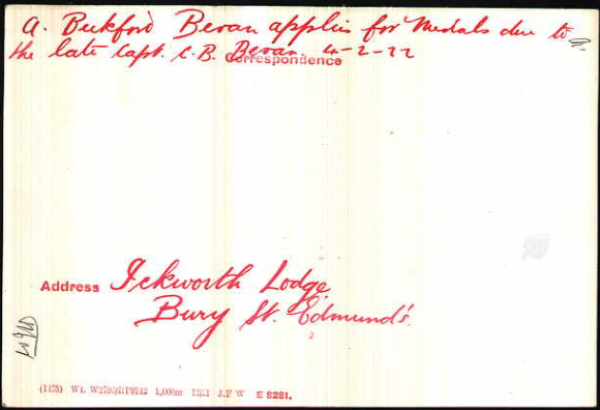 A. Beckford Bevan applies for Medals due to
the late Capt. C. B. Bevan. 4-2-22
Correspondence
Address Ickworth Lodge,
Bury St. Edmund's.
(1175) Wt. 1,000m J.F W E 8281.